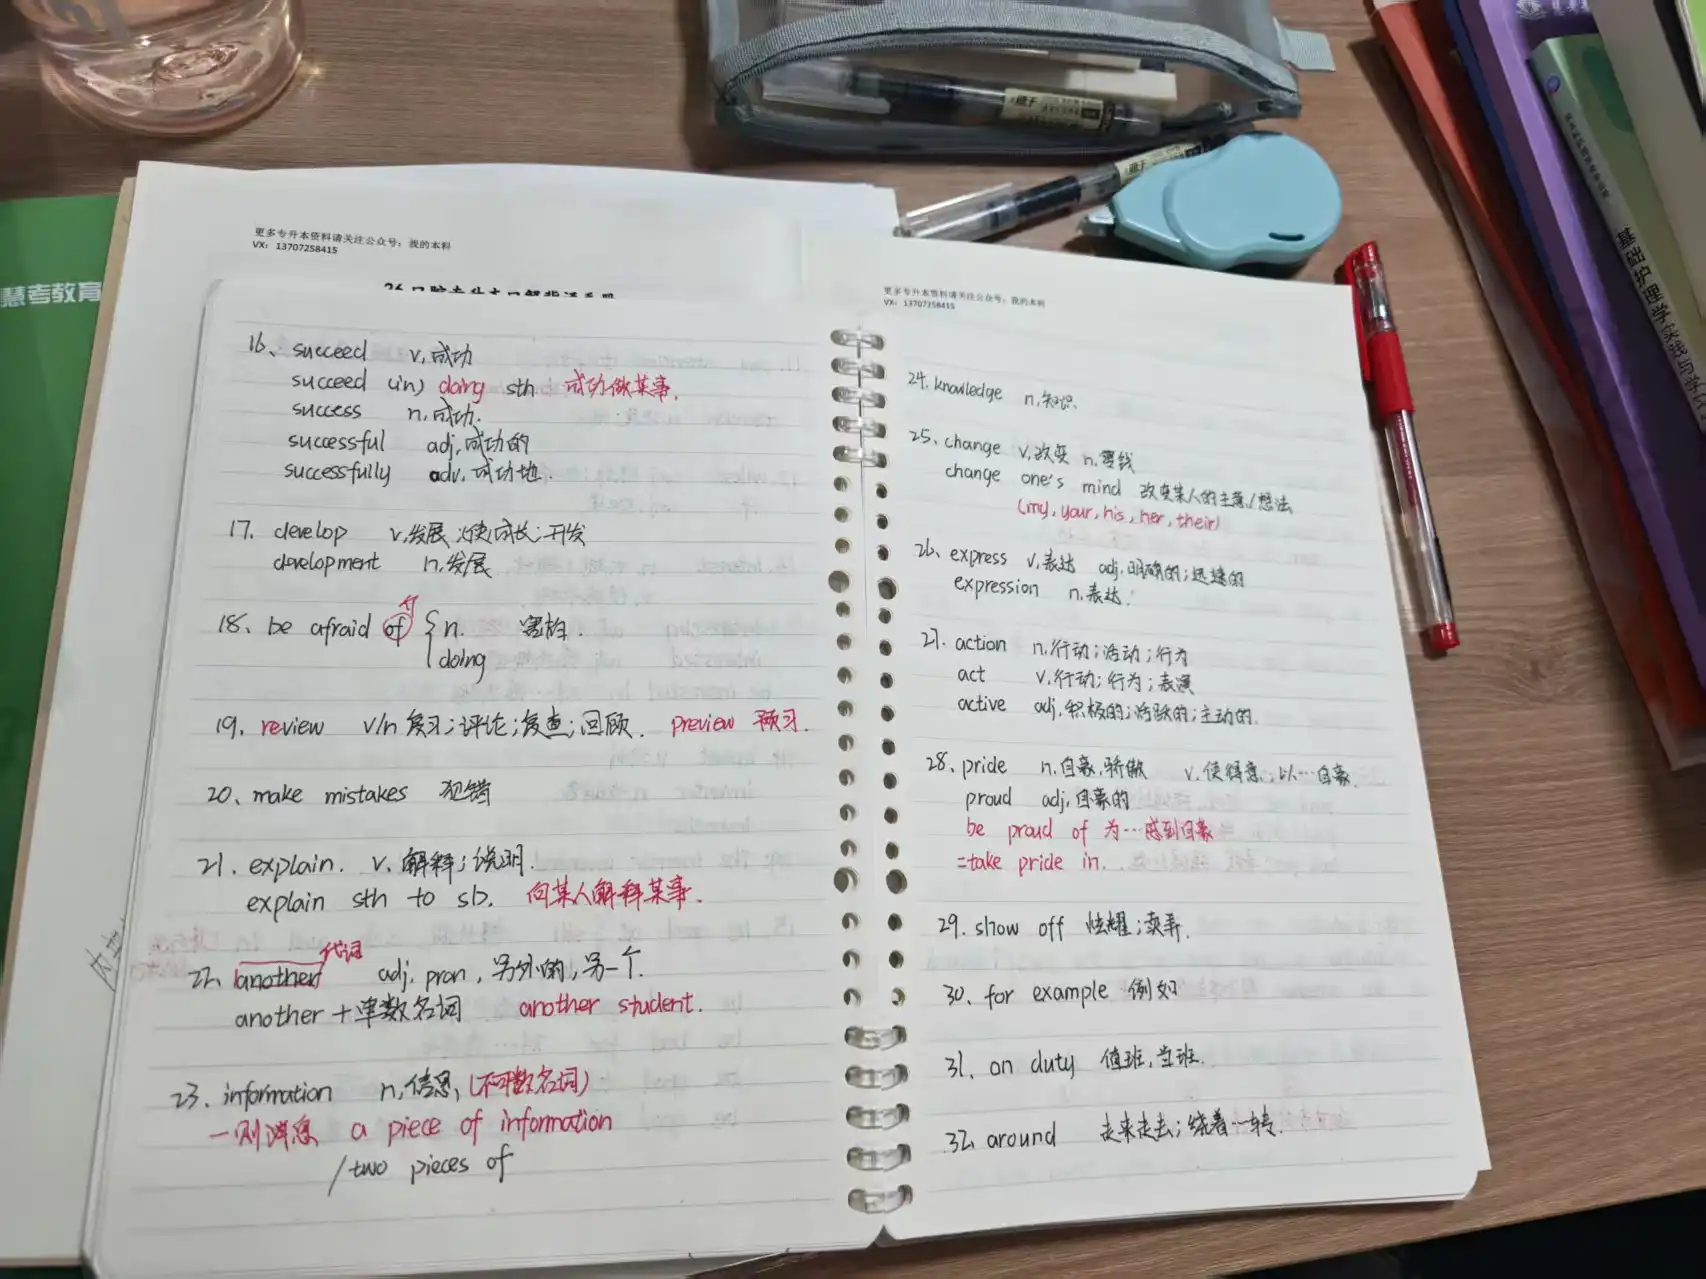 慧考教育
更多专升本资料请关注公众号：我的本科
VX：13707258415
16、succeed v,成功
succeed (in) doing sth 成功做某事.
success n,成功.
successful adj,成功的
successfully adv,成功地.
17、develop v,发展;使成长;开发
development n,发展
18、be afraid of { n. 害怕.
doing
19、review v/n 复习;评论;复查;回顾. preview 预习.
20、make mistakes 犯错
21、explain. v.解释;说明.
explain sth to sb. 向某人解释某事.
代词
22、another adj. pron,另外的,另一个.
another+单数名词 another student.
23、information n,信息,(不可数名词)
一则消息 a piece of information
/two pieces of
更多专升本资料请关注公众号：我的本科
VX：13707258415
24、knowledge n,知识.
25、change v,改变 n,零钱
change one's mind 改变某人的主意/想法
(my,your,his,her,their)
26、express v,表达 adj,明确的;迅速的
expression n,表达.
27、action n,行动;活动;行为
act v,行动;行为;表演
active adj,积极的;活跃的;主动的.
28、pride n,自豪,骄傲 v,使得意,;以…自豪.
proud adj,自豪的
be proud of 为…感到自豪
=take pride in.
29、show off 炫耀;卖弄.
30、for example 例如
31、on duty 值班,当班.
32、around 走来走去;绕着…转.